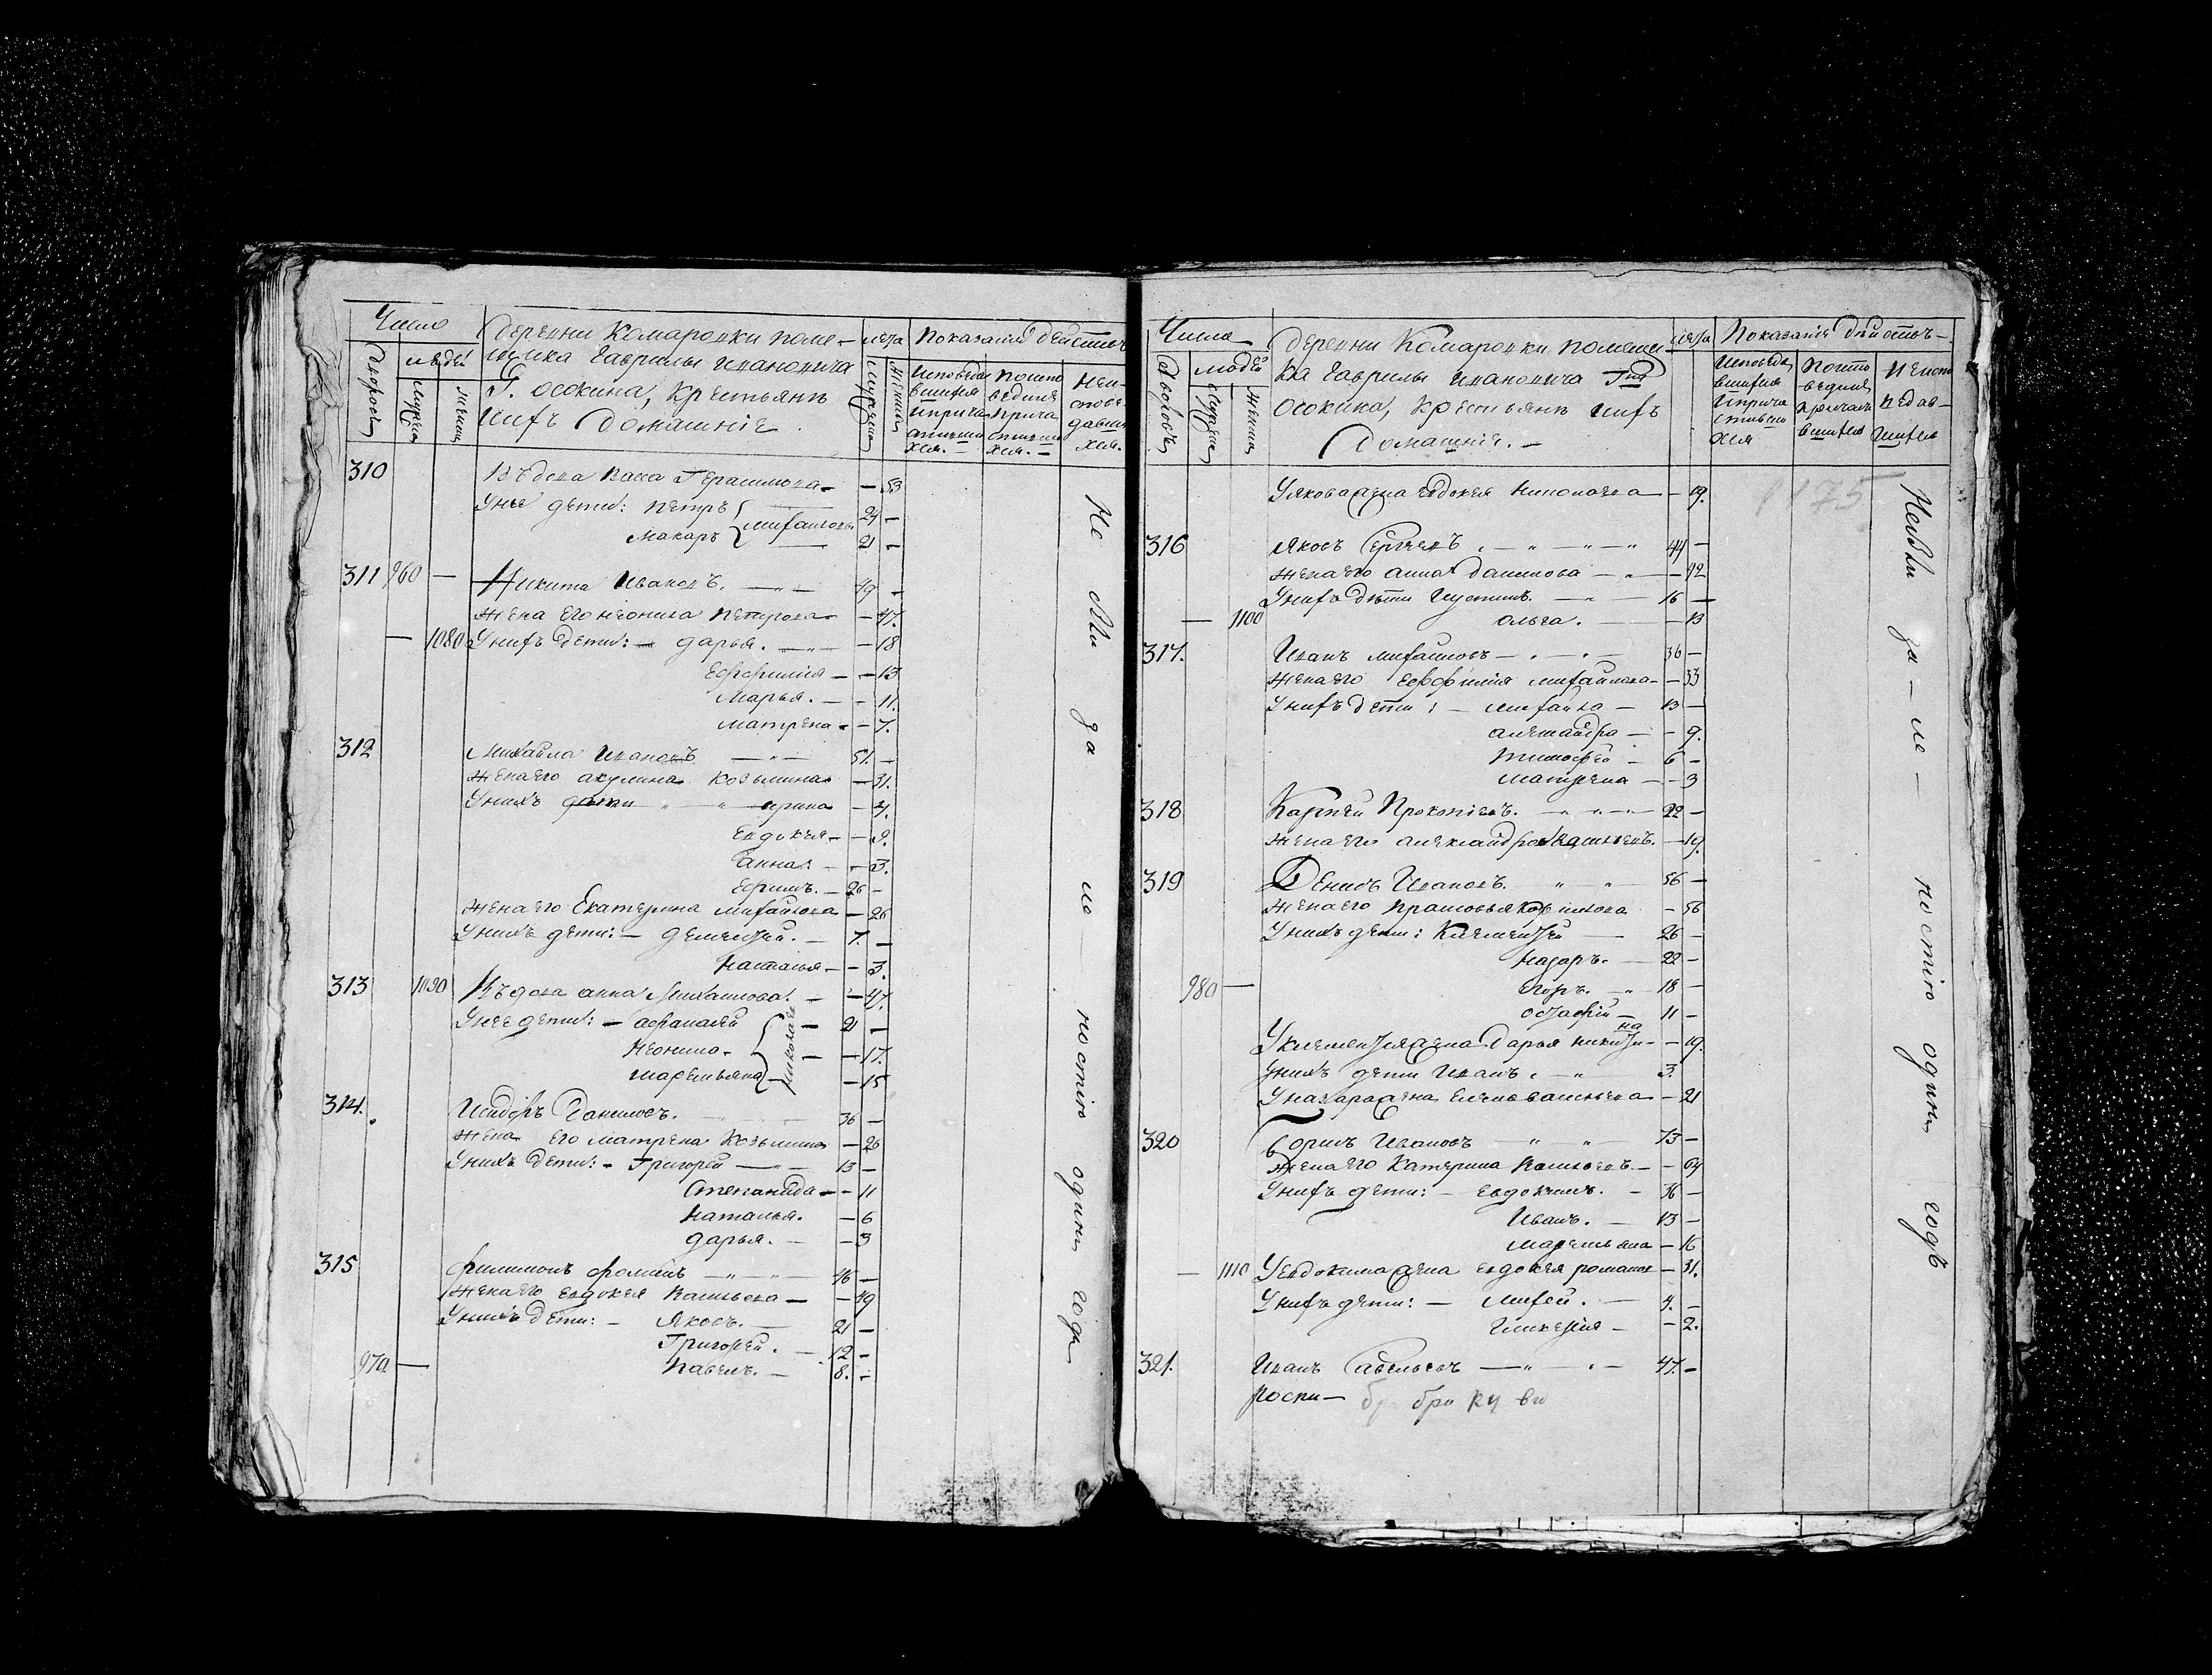 Число
деревни Комаровки поме-
щика Гаврилы Ивановича
Г. Осокина, крестьянъ
ихъ Домашніе.
лета
Показаніе действъ
Дворовъ
людей
мужеска
женска
мужеска
женска
Исповеда
вшихся
и прича
стивши
хся. —
Испо
ведав
шихся.
310 Въдова Васа Герасимова — — 53
У нее дети: Петръ } Михайловы 24 —
Макаръ 21 —
311 960 — Никита Ивановъ. — „ — 49 —
Жена его неонила Петрова — — 47.
— 1080 У нихъ дети: — дарья. — „ — — 18
Ефросинія — — 13
Марья. — — 11.
Матрена — — 7.
312 Михайла Ивановъ — „ — 51. —
Жена его акулина Козьмина — 31.
У нихъ дети „ „ ирина — 4.
Евдокея — — 9.
Анна: — — 3.
Ефимъ. — 26 —
Жена его Екатерина Михайлова — 26
У нихъ дети: — Дементей. — 7. —
Наталья — — 3.
313 1090 Въдова анна Михайлова. — — 47.
У нее дети: — афанасей 21 —
Неонила — — 17.
Маремьяна — — 15
314. Исидоръ Даниловъ. 36 —
Жена его Матрена Козьмина — 26
У нихъ дети: — Григорей — „ — 13 —
Степанида — — 11
Наталья. — 6
дарья. — — 3
315 Филимонъ фоминъ — „ — „ — 46 —
Жена его евдокея Васильева — — 49
У нихъ дети: — Яковъ. — 21 —
Григорей. — 12 —
970 — Павелъ. — 8. —
не бы
за
мо
ностію
одинъ
годъ
Числа
деревни Комаровки помещи
ка Гаврилы Ивановича Гна
Осокина, крестьянъ ихъ
Домашніе. —
лета
Показаніе действъ —
Дворовъ
людей
мужеска
женска
Исповеда
вшихся
и прича
стивши
хся
Неиспо
ведав —
шихся
1175
У якова жена евдокея — 19.
316 Яковъ Сергеевъ. — „ — „ — „ 44 —
Жена его анна Данилова — „ — 42
У нихъ дети Иустинъ. — „ — 16 —
— 1100 Ольга. — — 13
317. Иванъ Михайловъ — „ — „ — 36 —
Жена его Ефросинія Михайлова — — 33
У нихъ дети: — Михайла — 13 —
Александра — — 9.
Тимофей — 6 —
Матрена — — 3
318 Карпей Прокопіевъ. — „ — „ — 22 —
Жена его александра Васильевъ. — 19.
319 Денисъ Ивановъ. „ „ — 56 —
Жена его Прасковья — 56
У нихъ дети: Клементей — 26 —
Назаръ. — 22 —
980 — Егоръ. — „ 18 —
Остафій — 11 —
У клементея жена Дарья Никитина — — 19.
У нихъ дети Иванъ. — „ 3.
У назара жена Елена Васильева — 21
320 Борисъ Ивановъ „ „ — 73 —
Жена его Катерина Васильевъ. — — 64
У нихъ дети: — Евдокимъ. — 36 —
Иванъ. — 13 —
Маремьяна — 16
— 1110 У евдокима жена евдокея романов — 31.
У нихъ дети: — Михей. — 4. —
Гликерія — — 2.
321. Иванъ Савельевъ — „ — „ — 47. —
роспи —
небы
за — ле —
ностію
одинъ
годъ